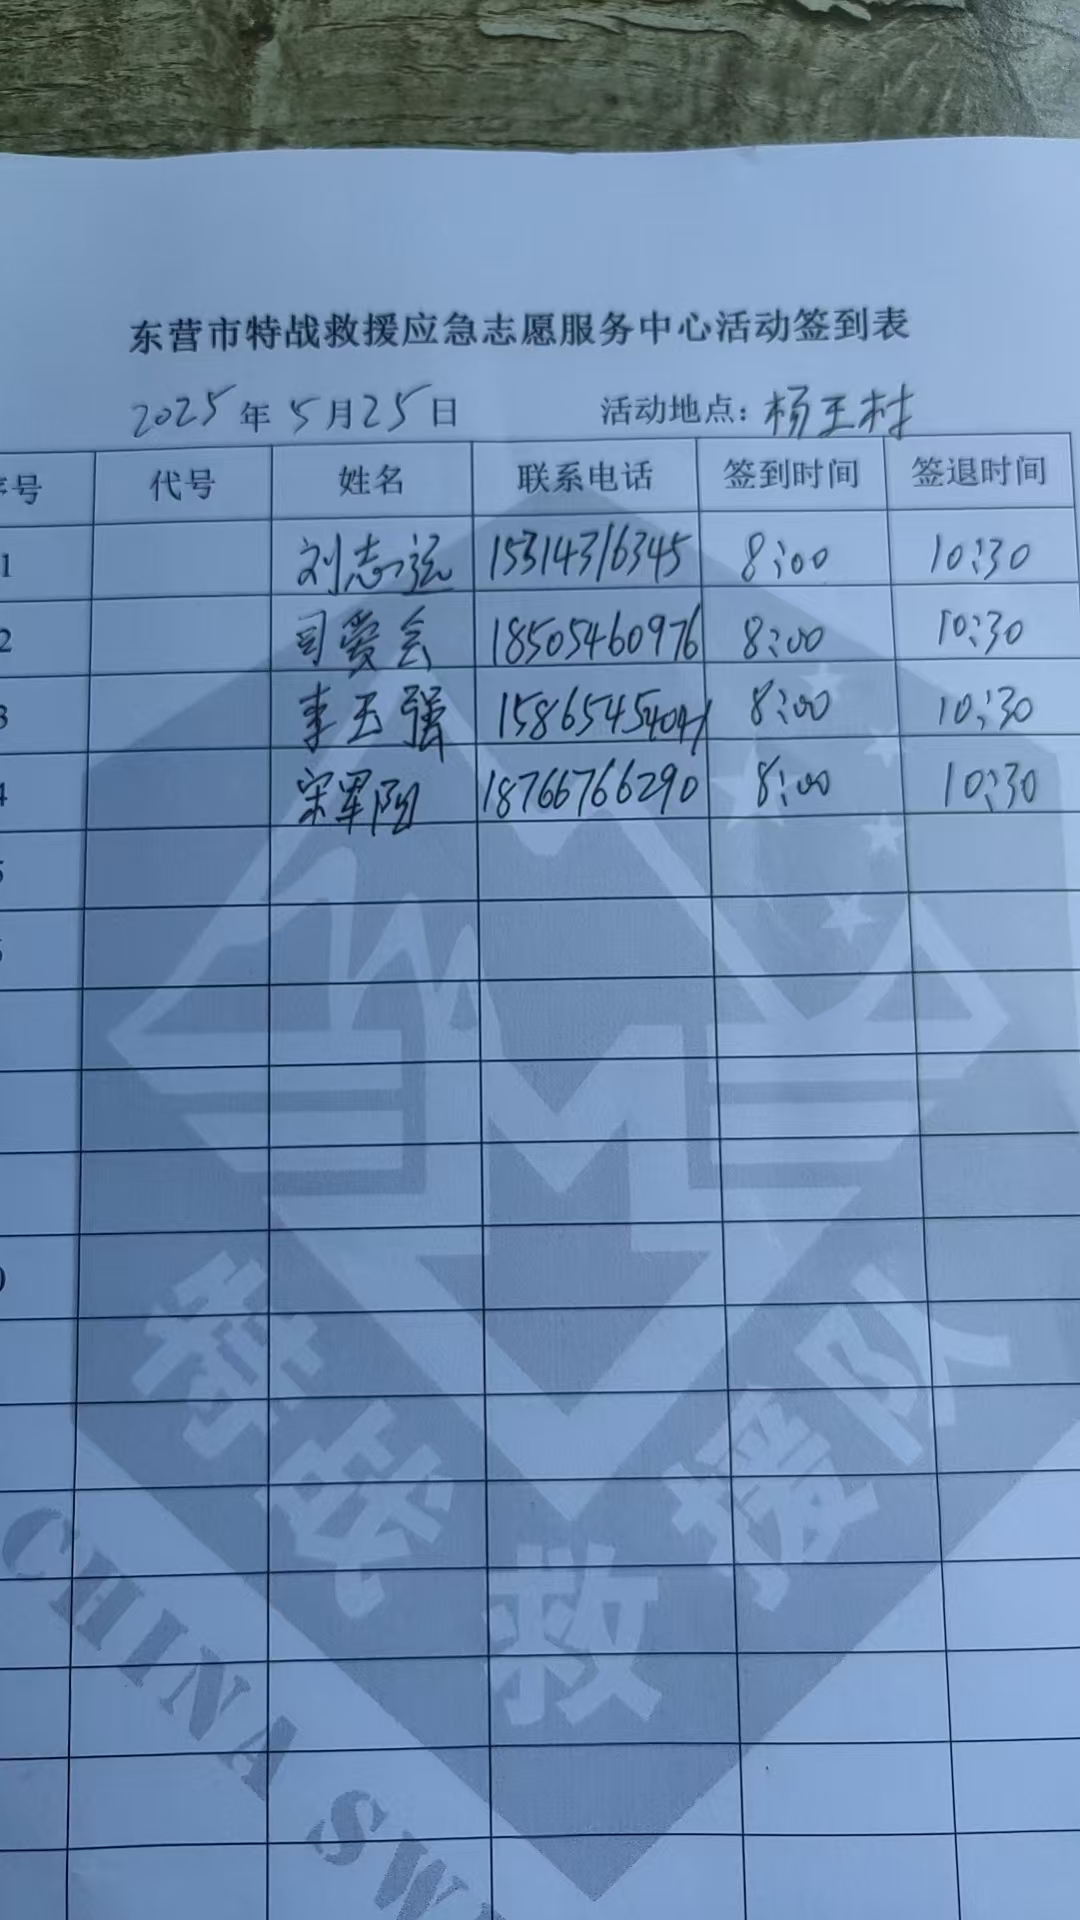 东营市特战救援应急志愿服务中心活动签到表
2025年5月25日 活动地点：杨王村
序号 代号 姓名 联系电话 签到时间 签退时间
1 刘志远 15314316345 8:00 10:30
2 司爱会 18505460976 8:00 10:30
3 李玉强 15865454041 8:00 10:30
4 宋军阳 18766766290 8:00 10:30
5
6
0
特战救援队
CHINA SW